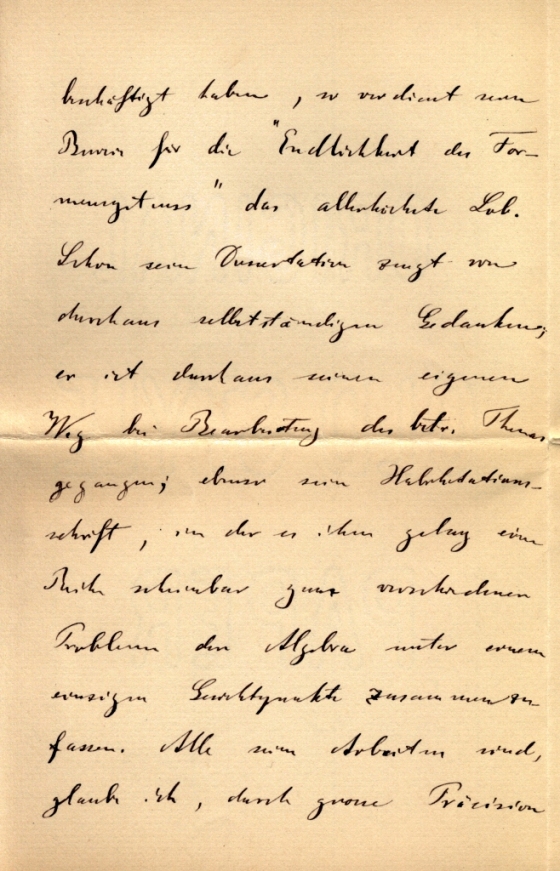 beschäftigt haben, so verdient sein
Beweis für die "Endlichkeit des For-
mensystems" das allerhöchste Lob.
Schon seine Dissertation zeugt von
durchaus selbstständigen Gedanken,
er ist durchaus seinen eigenen
Weg bei Bearbeitung des betr. Themas
gegangen; ebenso seine Habilitations-
schrift, in der es ihm gelang eine
Reihe scheinbar ganz verschiedenen
Probleme der Algebra unter einem
einzigen Gesichtspunkte zusammenzu-
fassen. Alle seine Arbeiten sind,
glaube ich, durch grosse Präcision